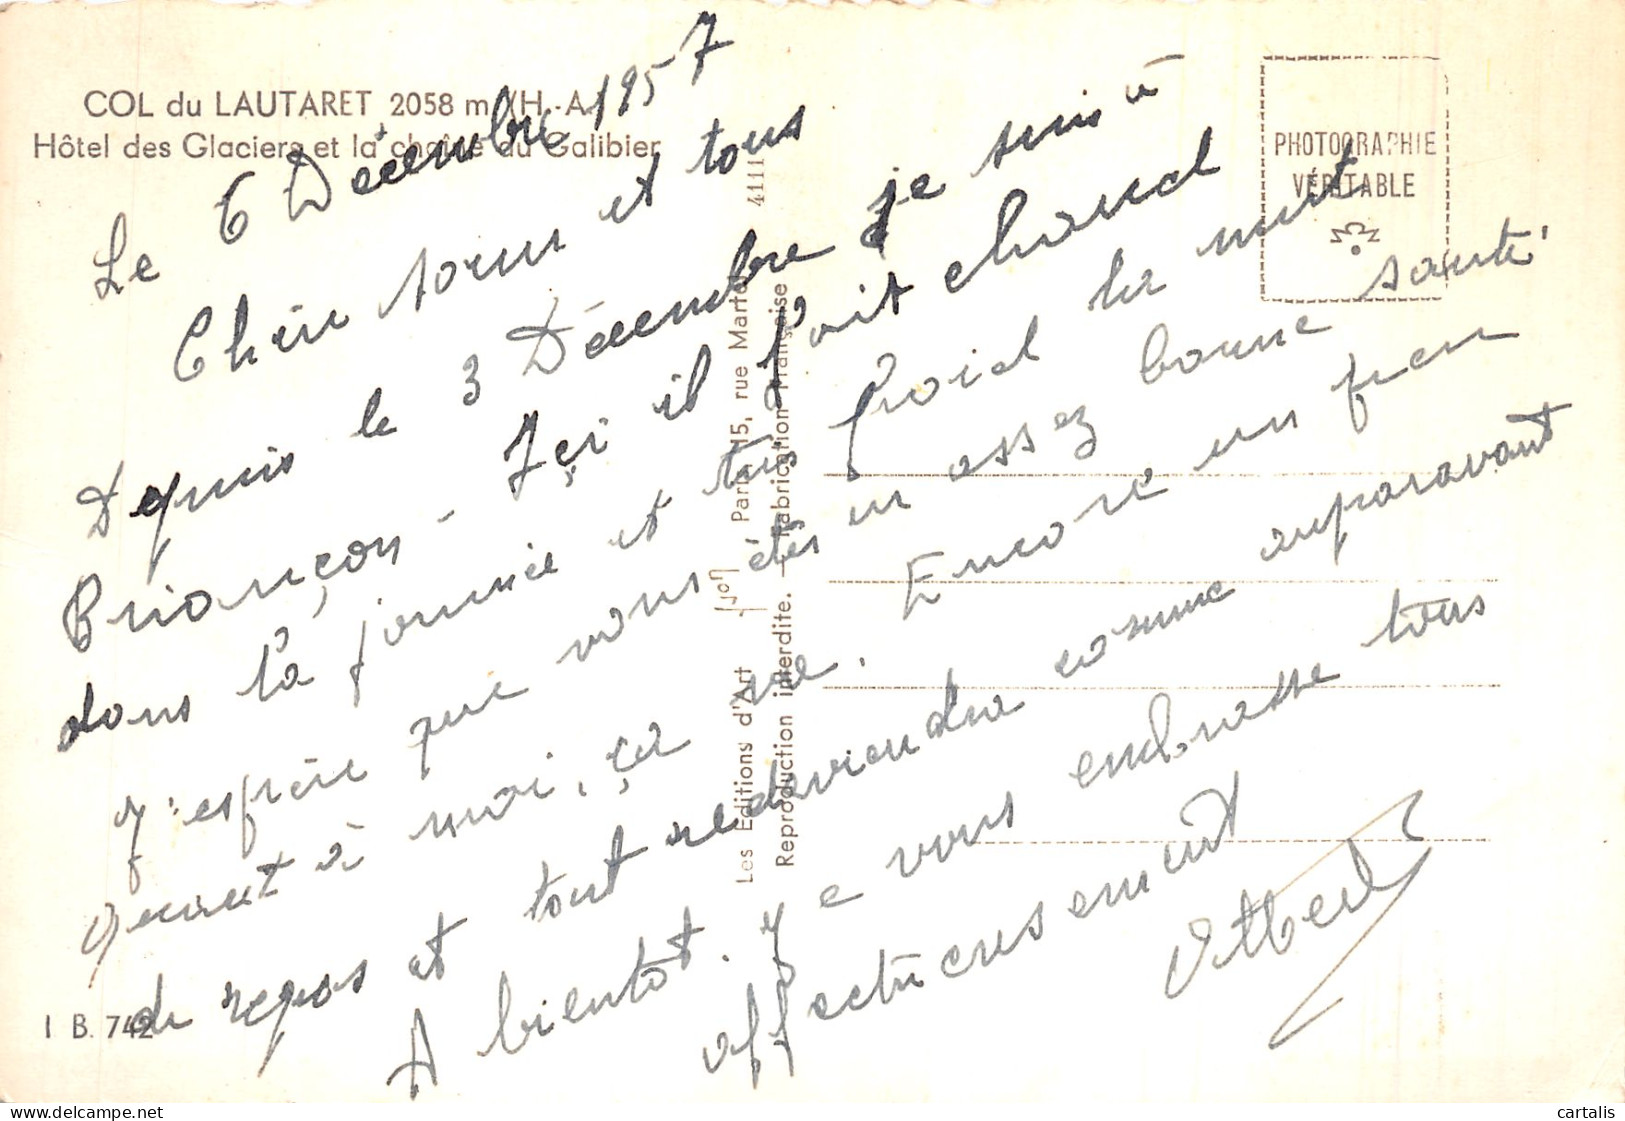 COL du LAUTARET 2058 m. (H.-A.)
Hôtel des Glaciers et la chaîne du Galibier
Le 6 Décembre 1957
Chère soeur et tous
Depuis le 3 Décembre je suis à
Briançon - Içi il fait chaud
dans la journée et très froid la nuit
J'espère que vous êtes en assez bonne santé
Quant à moi, ça va. Encore un peu
de repos et tout redeviendra comme auparavant
A bientôt. Je vous embrasse tous
affectueusement
Albert
PHOTOGRAPHIE
VÉRITABLE
Les Editions d'Art Yvon Paris 15, rue Martel 4111
Reproduction interdite. — Fabrication Française
I B. 742
delcampe.net
cartalis